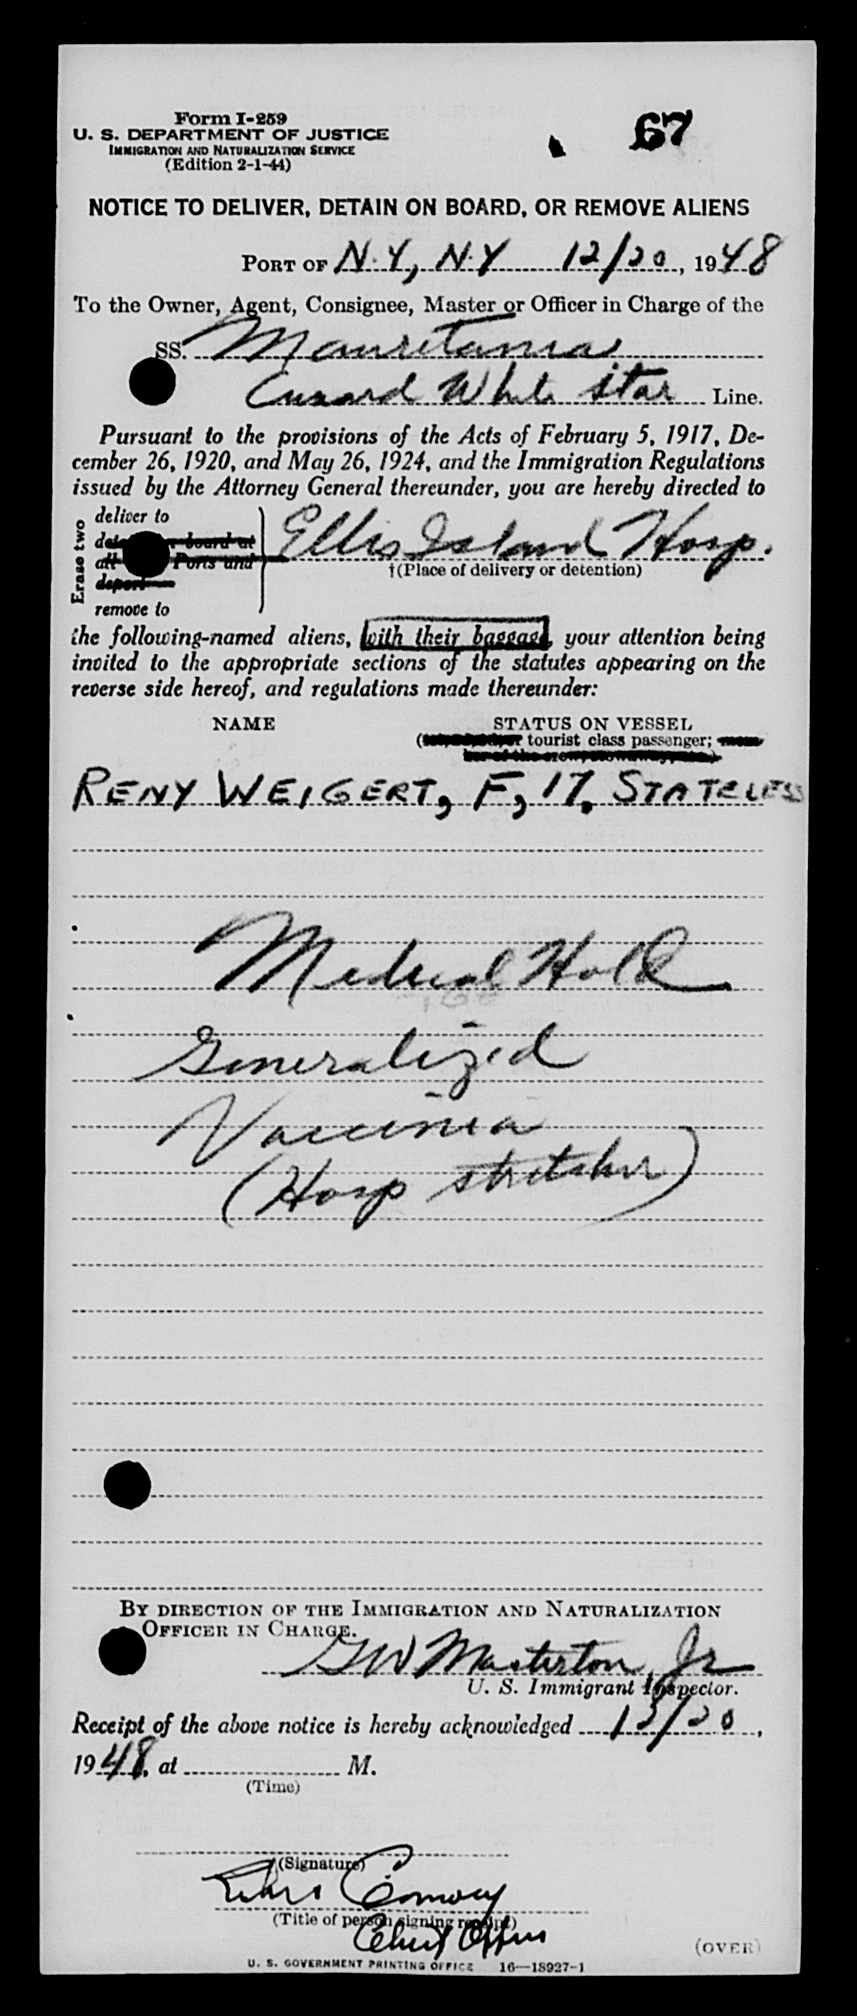 Form I-259
U. S. DEPARTMENT OF JUSTICE
IMMIGRATION AND NATURALIZATION SERVICE
(Edition 2-1-44)
67
NOTICE TO DELIVER, DETAIN ON BOARD, OR REMOVE ALIENS
PORT OF N.Y, N.Y 12/20, 1948
To the Owner, Agent, Consignee, Master or Officer in Charge of the
SS. Mauretania
Cunard White Star Line.
Pursuant to the provisions of the Acts of February 5, 1917, De-
cember 26, 1920, and May 26, 1924, and the Immigration Regulations
issued by the Attorney General thereunder, you are hereby directed to
Erase two
deliver to
board at
all Ports and
depart
remove to
Ellis Island Hosp.
†(Place of delivery or detention)
the following-named aliens, with their baggage, your attention being
invited to the appropriate sections of the statutes appearing on the
reverse side hereof, and regulations made thereunder:
NAME
STATUS ON VESSEL
( tourist class passenger; mem-
ber of the crew, stowaway, etc.)
RENY WEIGERT, F, 17. STATELESS
Medical Hold
Generalized
Vaccinia
(Hosp stretcher)
BY DIRECTION OF THE IMMIGRATION AND NATURALIZATION
OFFICER IN CHARGE.
GW Masterton, Jr
U. S. Immigrant Inspector.
Receipt of the above notice is hereby acknowledged 12/20,
1948, at M.
(Time)
(Signature)
Conway
(Title of person signing receipt)
Chief Officer
(OVER)
U. S. GOVERNMENT PRINTING OFFICE 16—18927-1